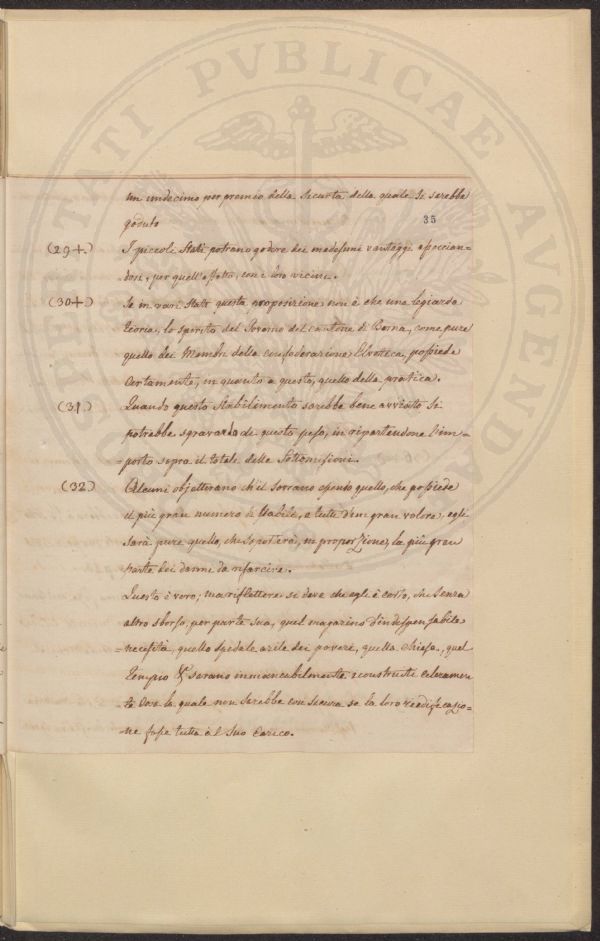 PROSPERITATI PVBLICAE AVGENDAE
un undecimo per premio della Securta della quale Si sarebbe
goduto
35
(29+.) I piccoli Stati potrano godere dei medesimi vantaggi associan=
dosi, per quell'effetto, con i loro vicini.
(30+) Se in vari Stati questa proposizione non è che una legiarda
teoria, lo Spirito del Governo del cantone di Berna, come pure
quello dei Membri della confoderazione Elvetica, possiede
Certamente, in quanto a questo, quello della pratica.
(31.) Quando questo Stabilimento sarebbe bene avviatto Si
potrebbe sgravarlo di questo peso, in ripartendone l'im=
=porto sopra il totale delle Sottomissioni.
(32.) Alcuni objetterano ch'il Sovrano essendo quello, che possiede
il più gran numero di Stabili, e tutti d'un gran valore, egli
Sarà pure quello, che Soporterà, in proporzione, la più gran
parte dei danni da risarcire.
Questo è vero; ma riflettere si deve che egli è certo, che Senza
altro sborso, per parte Sua, quel magazino d'indispensabile
=necessità, quello spedale asile dei poveri, quella chiesa, quel
tempio &c sarano immancabilmente reconstrutti celeramen
te Cosa la quale non Sarebbe con sicura se la loro reedificazio=
ne fosse tutta à l Suo Carico.